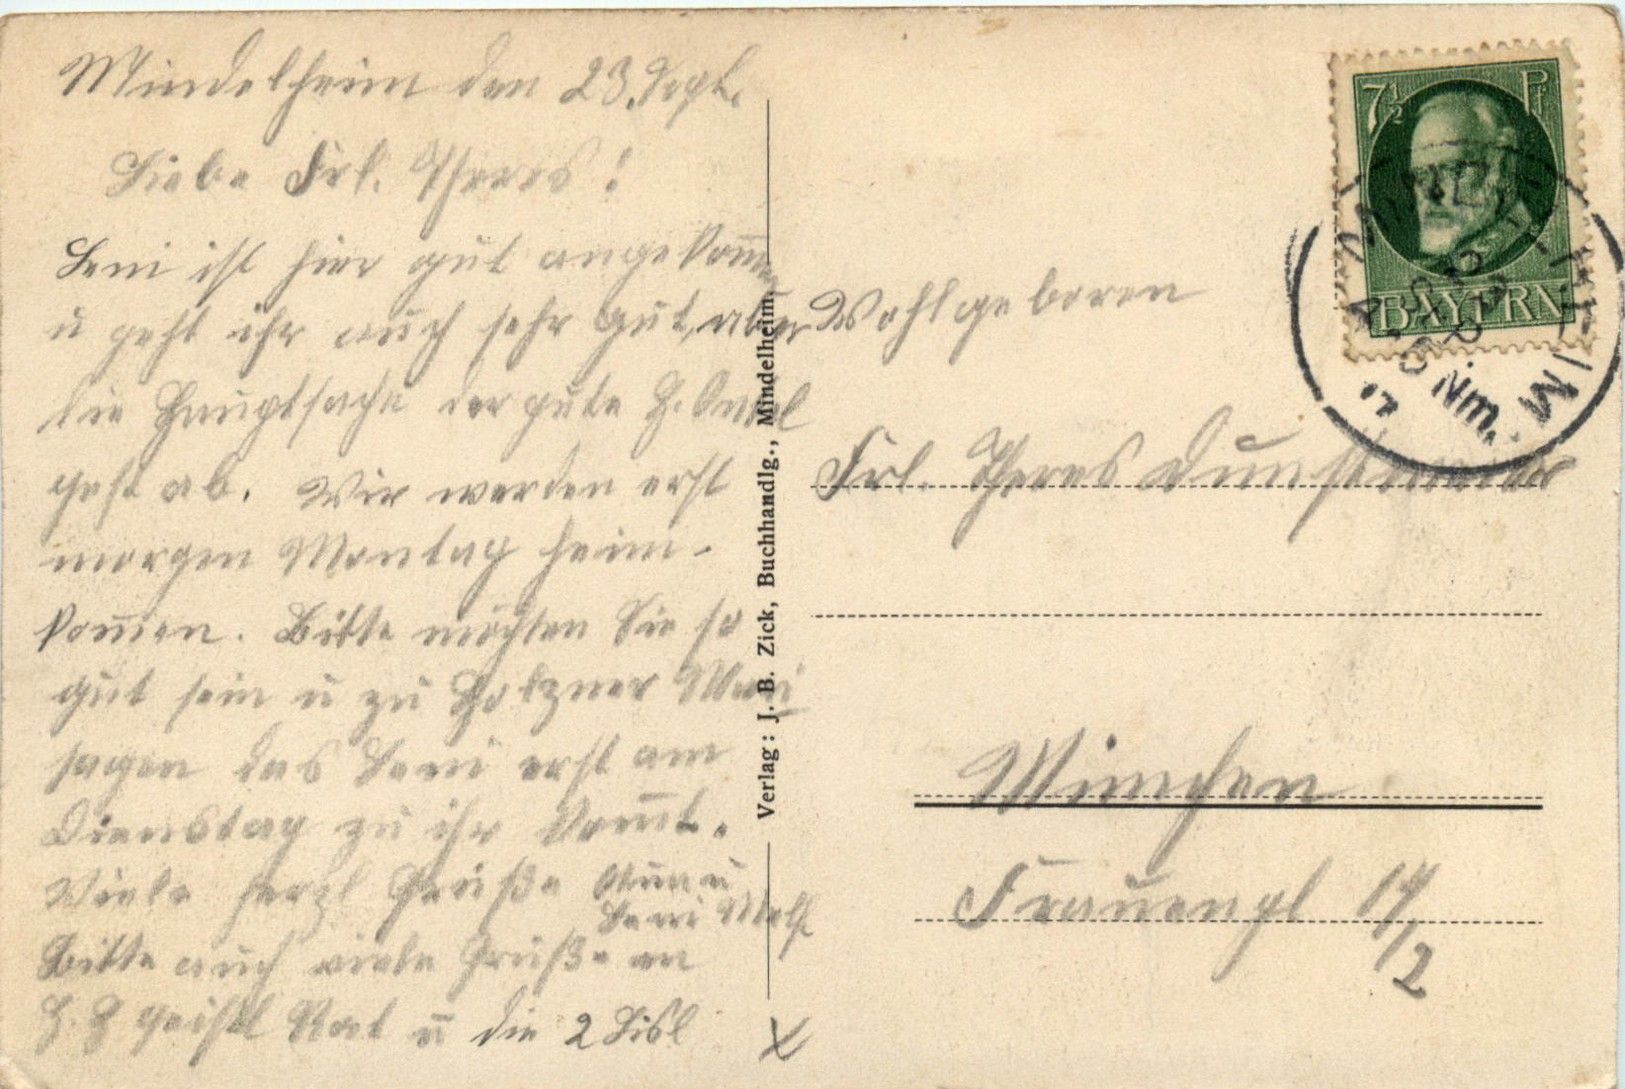 Mindelheim den 23. Sept.
Liebe Frl. Theres!
Leni ist hier gut angekom̅en
u geht ihr auch sehr gut, aber
die Hauptsache der gute H. Onkel
geht ab. Wir werden erst
morgen Montag heim-
kom̅en. Bitte möchten Sie so
gut sein u zu Holzner Mari
sagen das Leni erst am
Dienstag zu ihr kom̅t.
Viele herzl Grüße Anna u
Leni
Bitte auch viele Grüße an
H. H geistl Rat u die 2 Lisl
Verlag: J. B. Zick, Buchhandlg., Mindelheim.
7½ Pf
BAYERN
MINDELHEIM
Nm.
Wohlgeboren
Frl. Theres
München
Frauenpl 14/2